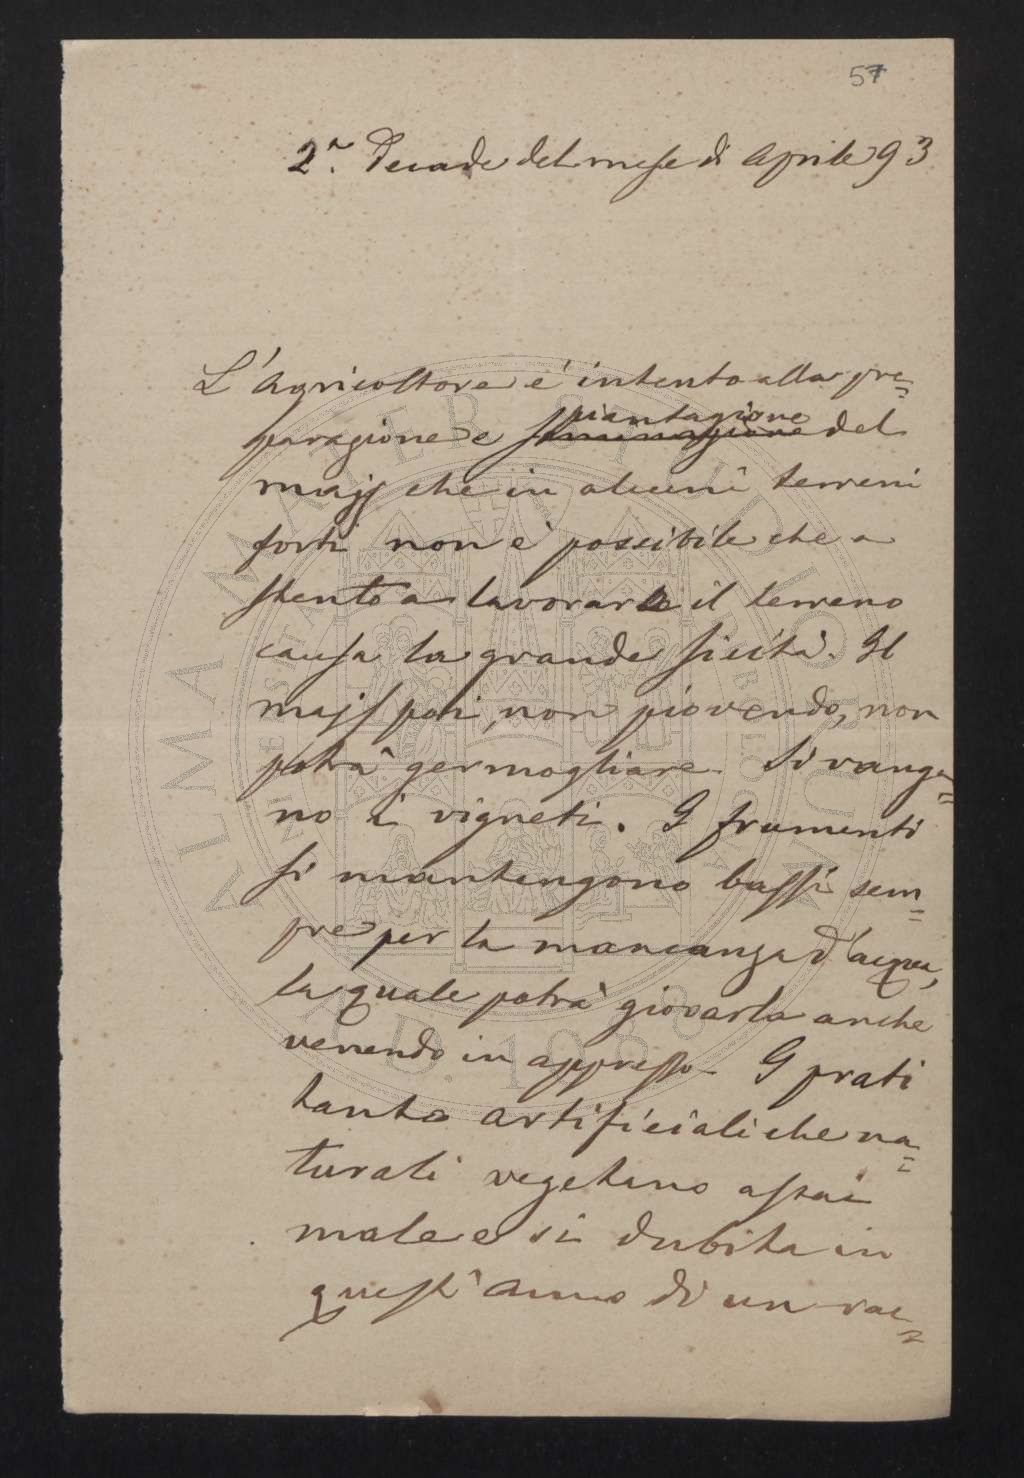 57
2ª. Decade del mese di Aprile 93
L'Agricoltore è intento alla pre=
piantagione
parazione e seminagione del
majs che in alcuni terreni
forti non è possibile che a
stento a lavorare il terreno
causa la grande sicità. Il
majs poi, non piovendo, non
potrà germogliare. Si vanga=
no i vigneti. I frumenti
si mantengono bassi sem=
pre per la mancanza d'acqua,
la quale potrà giovarla anche
venendo in appresso. I prati
tanto artificiali che na=
turali vegetano assai
male e si dubita in
quest'anno di un rac=
ALMA MATER STUDIORUM
A.D. 1088